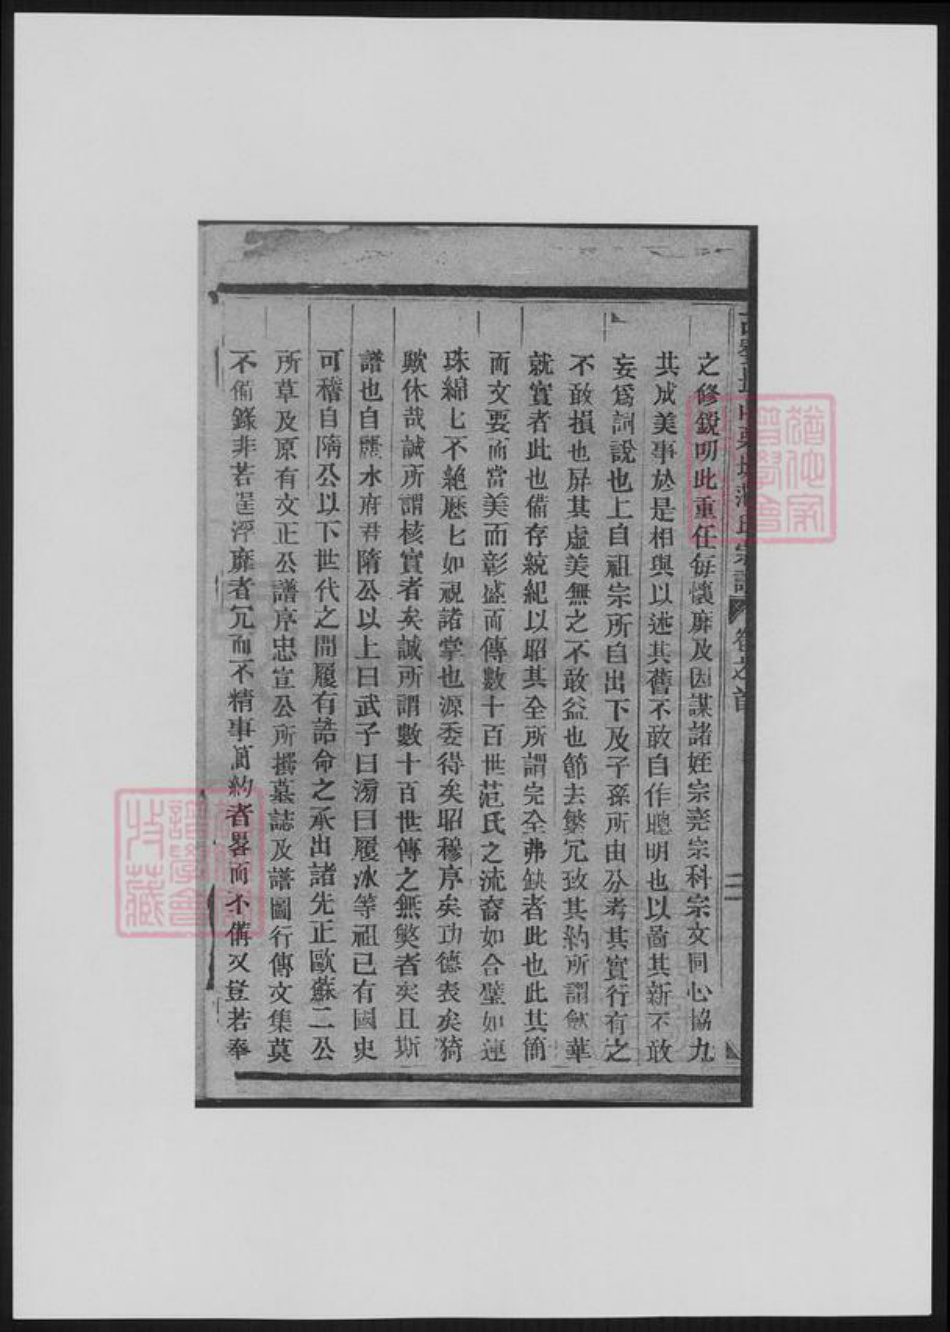 卷之首
三
之修銳明此重任每懷靡及因謀諸姪宗堯宗科宗文同心協九
其成美事於是相與以述其舊不敢自作聰明也以啚其新不敢
妄爲詞說也上自祖宗所自出下及子孫所由分考其實行有之
不敢損也屏其虛美無之不敢益也節去繁冗致其約所謂斂華
就實者此也備存統紀以昭其全所謂完全弗缺者此也此其簡
而文要而當美而彰盛而傳數十百世范氏之流裔如合璧如連
珠綿匕不絶歷匕如視諸掌也源委得矣昭穆序矣功德表矣猗
歟休哉誠所謂核實者矣誠所謂數十百世傳之無斁者矣且斯
譜也自麗水府君隋公以上曰武子曰滂曰履冰等祖已有國史
可稽自隋公以下世代之間履有誥命之承出諸先正歐蘇二公
所草及原有文正公譜序忠宣公所撰墓誌及譜圖行傳文集莫
不備錄非若逞浮靡者冗而不精事簡約者畧而不備又豈若奉
譜學會
收藏